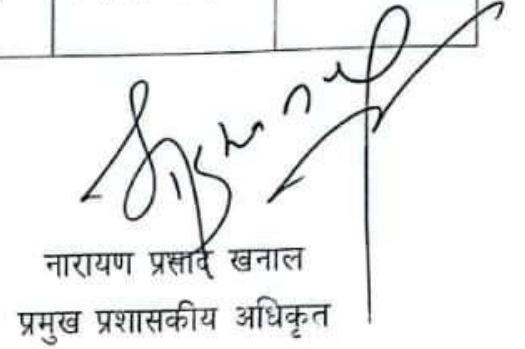 नारायण प्रसाद खनाल
प्रमुख प्रशासकीय अधिकृत